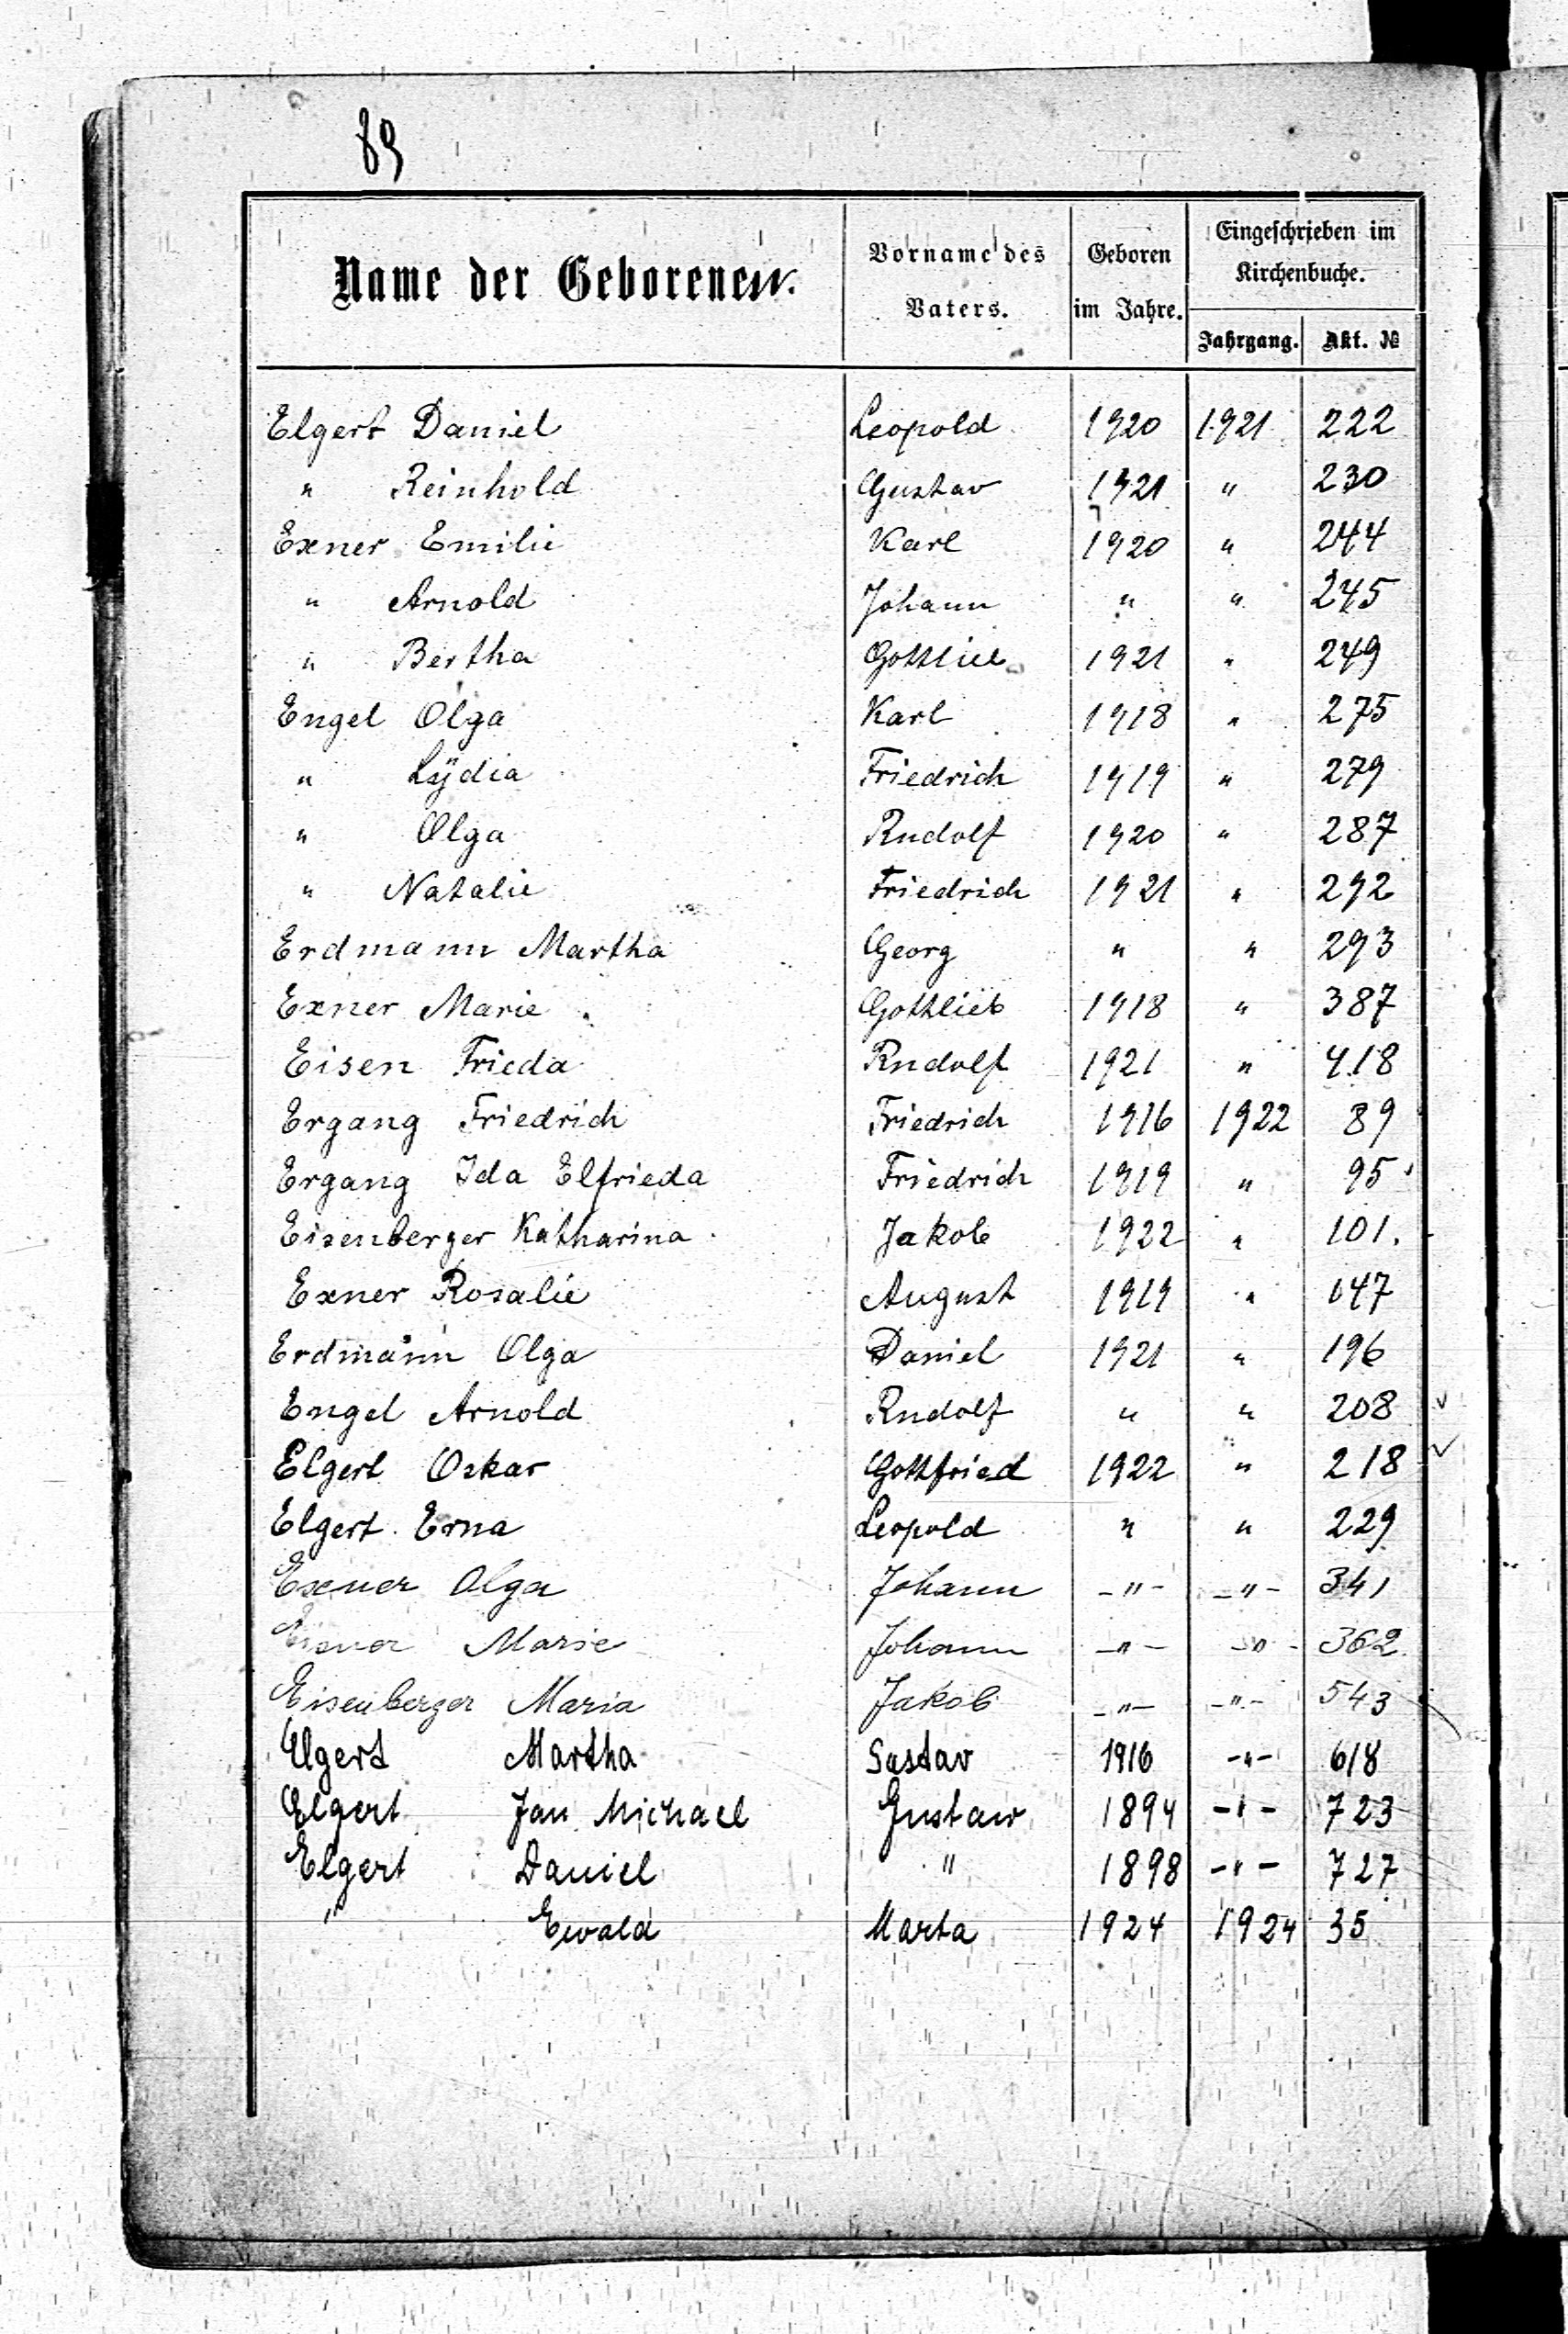 89
Name der Geborenen.
Vorname des Vaters.
Geboren im Jahre.
Eingeschrieben im Kirchenbuche.
Jahrgang. Akt. №
Elgert Daniel Leopold 1920 1921 222
" Reinhold Gustav 1921 " 230
Exner Emilie Karl 1920 " 244
" Arnold Johann " " 245
" Bertha Gottlieb 1921 " 249
Engel Olga Karl 1918 " 275
" Lÿdia Friedrich 1919 " 279
" Olga Rudolf 1920 " 287
" Natalie Friedrich 1921 " 292
Erdmann Martha Georg " " 293
Exner Marie Gottlieb 1918 " 387
Eisen Frieda Rudolf 1921 " 418
Ergang Friedrich Friedrich 1916 1922 89
Ergang Ida Elfrieda Friedrich 1919 " 95
Eisenberger Katharina Jakob 1922 " 101.
Exner Rosalie August 1919 " 147
Erdmann Olga Daniel 1921 " 196
Engel Arnold Rudolf " " 208 ✓
Elgert Oskar Gottfried 1922 " 218 ✓
Elgert Erna Leopold " " 229
Exner Olga Johann -"- -"- 341
Marie Johann -"- -"- 362
Eisenberger Maria Jakob -"- -"- 543
Elgert Martha Gustav 1916 -"- 618
Elgert Jan Michael Gustaw 1894 -"- 723
Elgert Daniel " 1898 -"- 727
" Ewald Marta 1924 1924 35